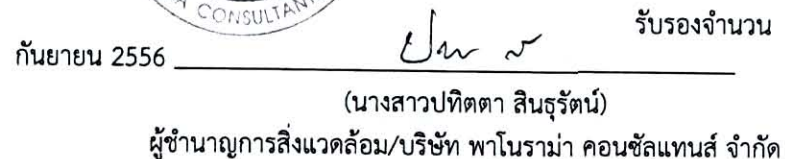 A CONSULTANT
รับรองจำนวน
กันยายน 2556
(นางสาวปทิตตา สินธุรัตน์)
ผู้ชำนาญการสิ่งแวดล้อม/บริษัท พาโนราม่า คอนซัลแทนส์ จำกัด